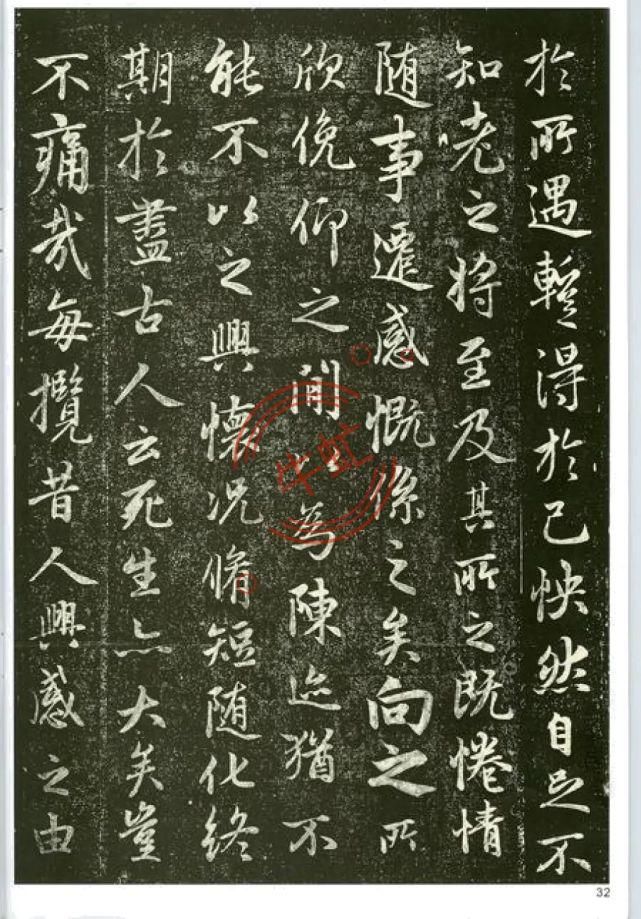 於所遇暫得於己怏然自足不
知老之將至及其所之既惓情
随事遷感慨係之矣向之所
欣俛仰之閒以為陳迹猶不
能不以之興懷况脩短随化終
期於盡古人云死生亦大矣豈
不痛哉每攬昔人興感之由
32